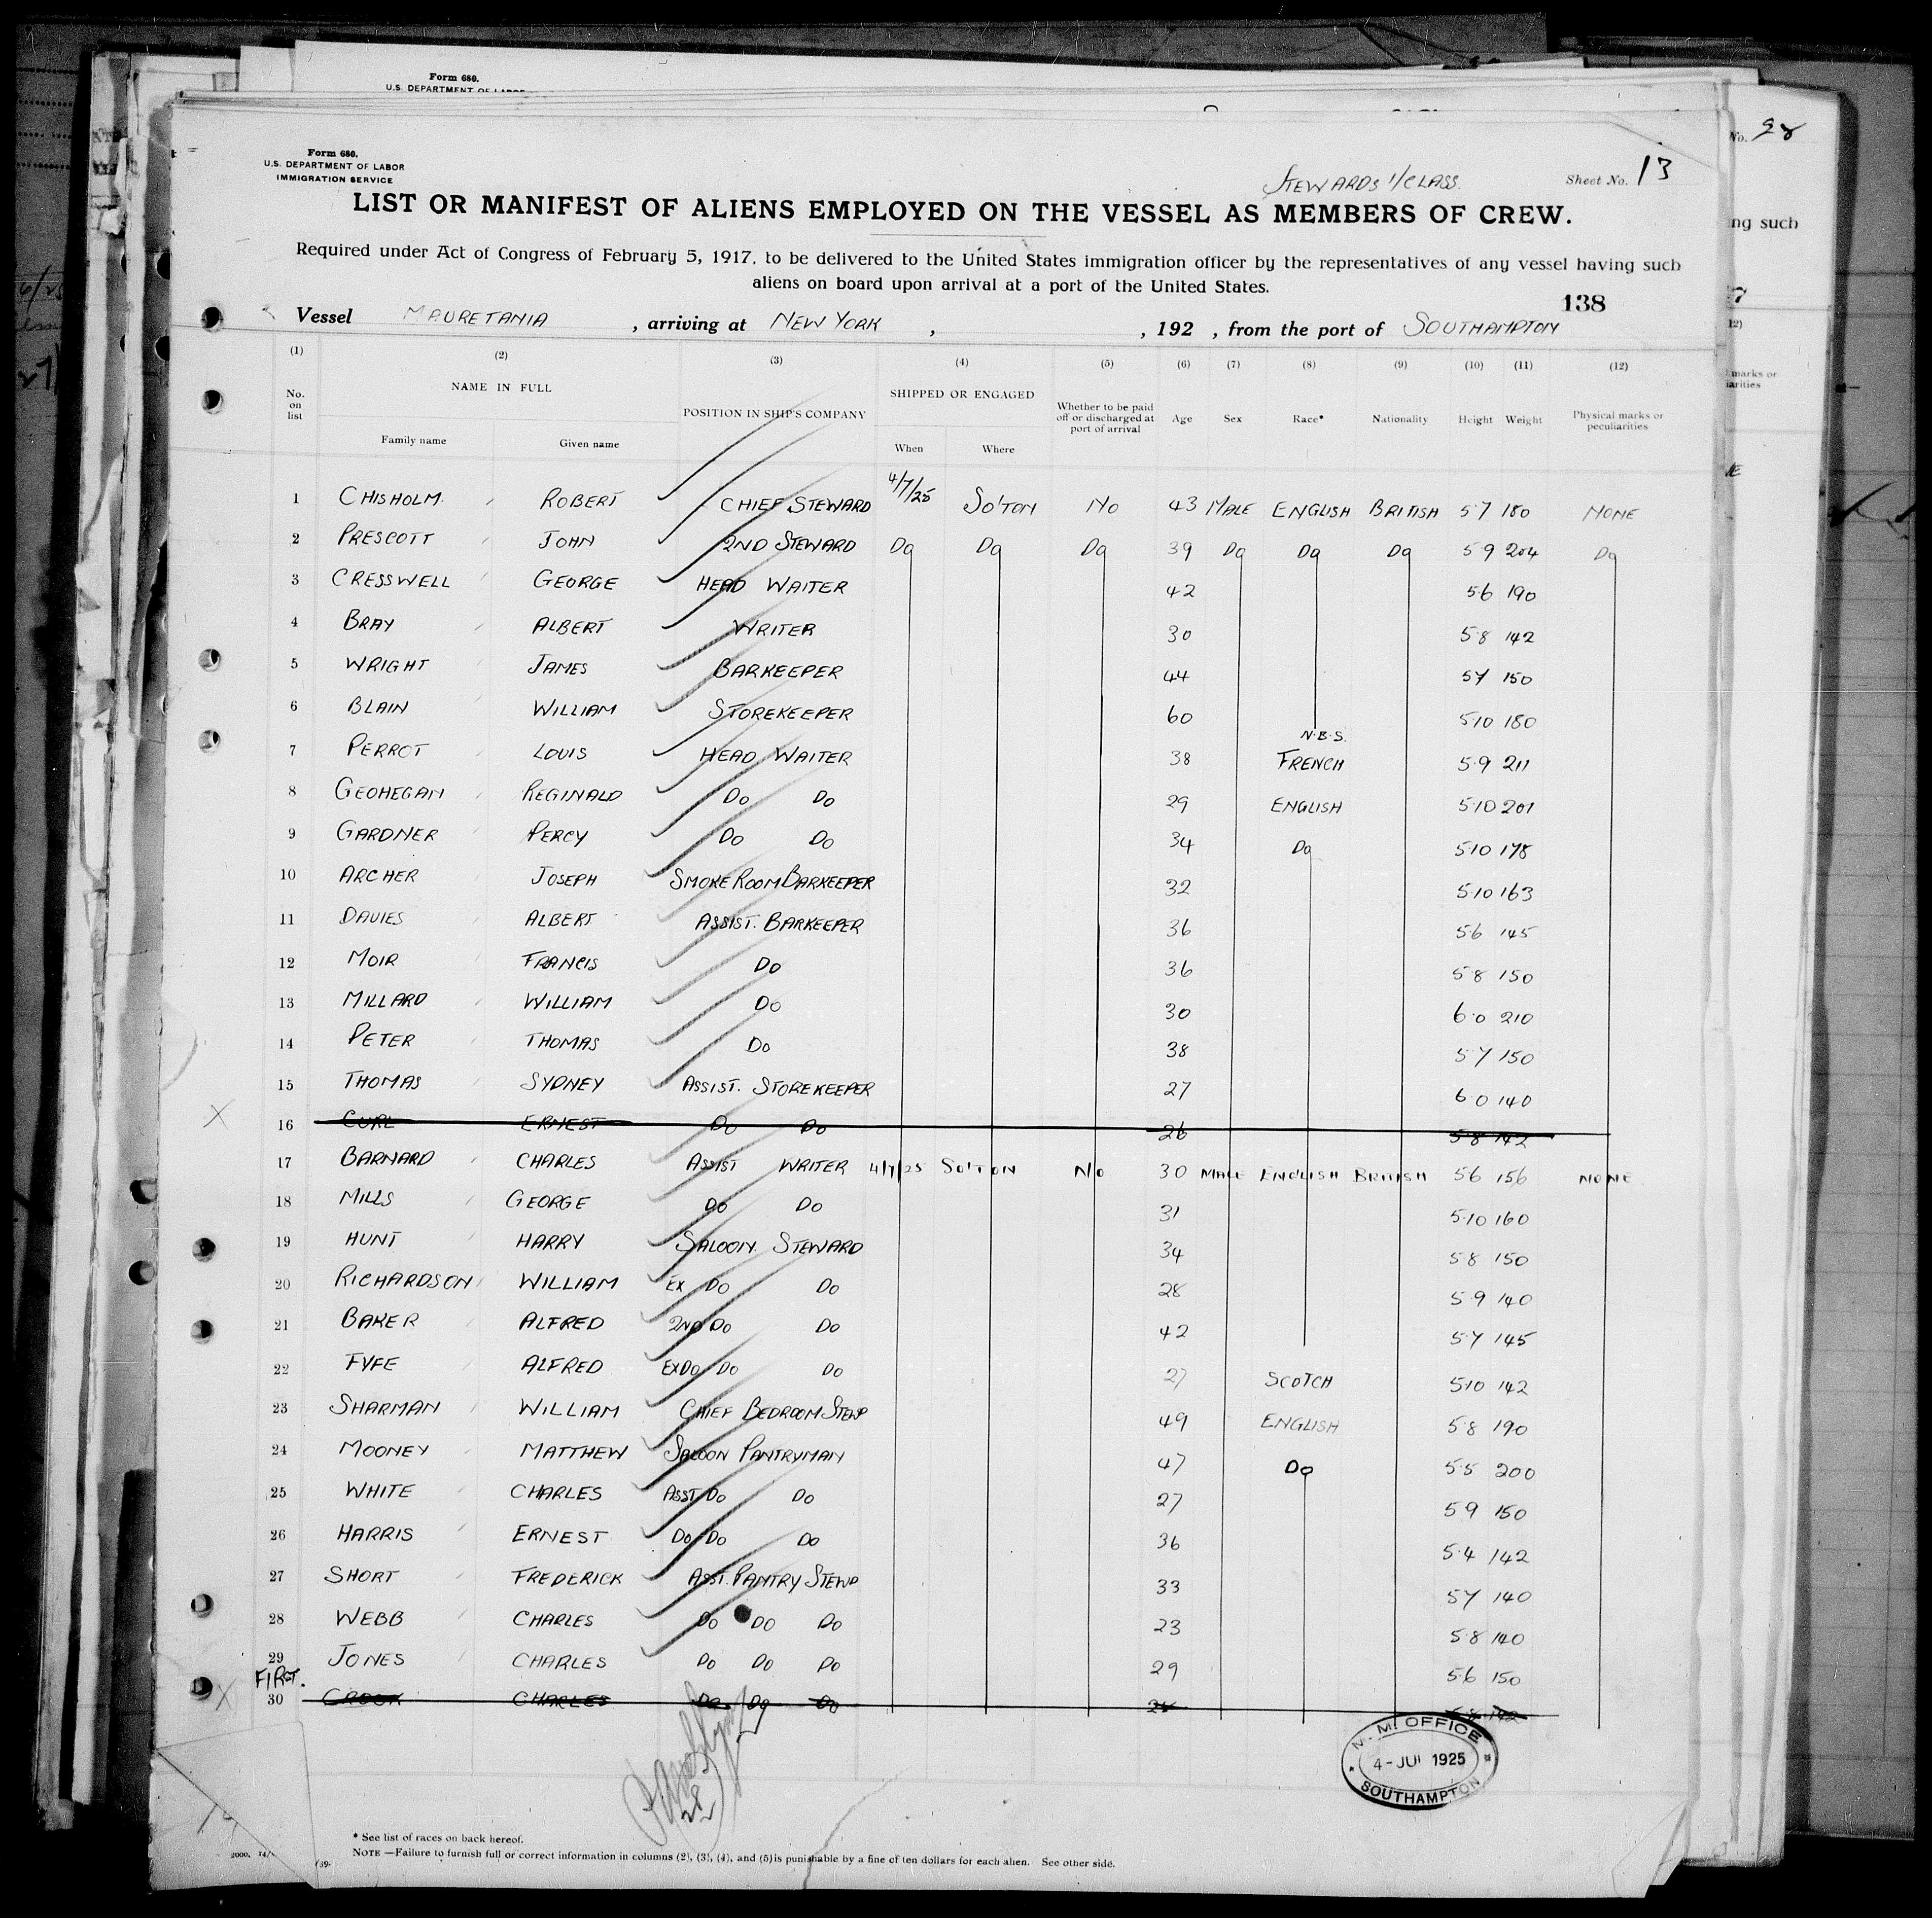 Form 680.
U.S. DEPARTMENT OF LABOR
No. 98
Form 680.
U.S. DEPARTMENT OF LABOR
IMMIGRATION SERVICE
STEWARDS 1/CLASS.
Sheet No. 13
LIST OR MANIFEST OF ALIENS EMPLOYED ON THE VESSEL AS MEMBERS OF CREW.
ng such
Required under Act of Congress of February 5, 1917, to be delivered to the United States immigration officer by the representatives of any vessel having such
aliens on board upon arrival at a port of the United States.
138
Vessel MAURETANIA, arriving at NEW YORK, , 192 , from the port of SOUTHAMPTON
(1) (2) (3) (4) (5) (6) (7) (8) (9) (10) (11) (12)
No. on list NAME IN FULL POSITION IN SHIP'S COMPANY SHIPPED OR ENGAGED Whether to be paid off or discharged at port of arrival Age Sex Race* Nationality Height Weight Physical marks or peculiarities
Family name Given name When Where
1 CHISHOLM ROBERT CHIEF STEWARD 4/7/25 SO'TON NO 43 MALE ENGLISH BRITISH 5 7 180 NONE
2 PRESCOTT JOHN 2ND STEWARD DO DO DO 39 DO DO DO 5 9 204 DO
3 CRESSWELL GEORGE HEAD WAITER 42 5 6 190
4 BRAY ALBERT WRITER 30 5 8 142
5 WRIGHT JAMES BARKEEPER 44 5 7 150
6 BLAIN WILLIAM STOREKEEPER 60 5 10 180
N.B.S.
7 PERROT LOUIS HEAD WAITER 38 FRENCH 5 9 211
8 GEOHEGAN REGINALD DO DO 29 ENGLISH 5 10 201
9 GARDNER PERCY DO DO 34 DO 5 10 178
10 ARCHER JOSEPH SMOKE ROOM BARKEEPER 32 5 10 163
11 DAVIES ALBERT ASSIST. BARKEEPER 36 5 6 145
12 MOIR FRANCIS DO 36 5 8 150
13 MILLARD WILLIAM DO 30 6 0 210
14 PETER THOMAS DO 38 5 7 150
15 THOMAS SYDNEY ASSIST. STOREKEEPER 27 6 0 140
16 CURL ERNEST DO DO 26 5 8 142
17 BARNARD CHARLES ASSIST WRITER 4/7/25 SO'TON NO 30 MALE ENGLISH BRITISH 5 6 156 NONE
18 MILLS GEORGE DO DO 31 5 10 160
19 HUNT HARRY SALOON STEWARD 34 5 8 150
20 RICHARDSON WILLIAM EX DO DO 28 5 9 140
21 BAKER ALFRED 2ND DO DO 42 5 7 145
22 FYFE ALFRED EX DO DO DO 27 SCOTCH 5 10 142
23 SHARMAN WILLIAM CHIEF BEDROOM STEWD 49 ENGLISH 5 8 190
24 MOONEY MATTHEW SALOON PANTRYMAN 47 DO 5 5 200
25 WHITE CHARLES ASST DO DO 27 5 9 150
26 HARRIS ERNEST DO DO DO 36 5 4 142
27 SHORT FREDERICK ASST. PANTRY STEWD 33 5 7 140
28 WEBB CHARLES DO DO DO 23 5 8 140
29 JONES CHARLES DO DO DO 29 5 6 150
FIRST.
30 CROOK CHARLES DO DO DO 5 8 142
M.M. OFFICE
4 - JUL 1925
SOUTHAMPTON
28
* See list of races on back hereof.
NOTE —Failure to furnish full or correct information in columns (2), (3), (4), and (5) is punishable by a fine of ten dollars for each alien. See other side.